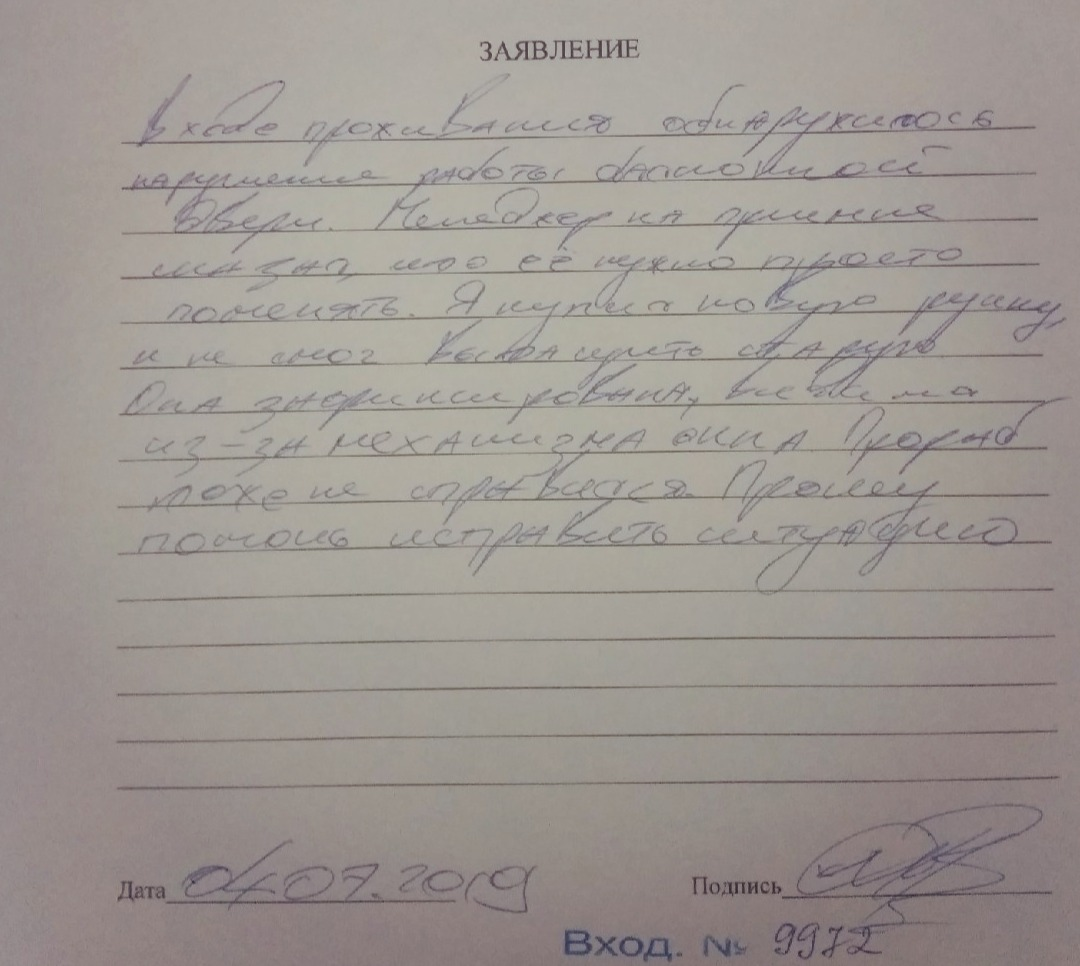 ЗАЯВЛЕНИЕ
В ходе проживания обнаружилось
нарушение работы балконной
двери. Менеджер на приёмке
сказал, что её нужно просто
поменять. Я купил новую ручку,
и не смог выкрутить старую
Она зафиксирована, видимо
из-за механизма окна. Прораб
тоже не справился. Прошу
помочь исправить ситуацию
Дата 04.07.2019 Подпись
Вход. № 9972